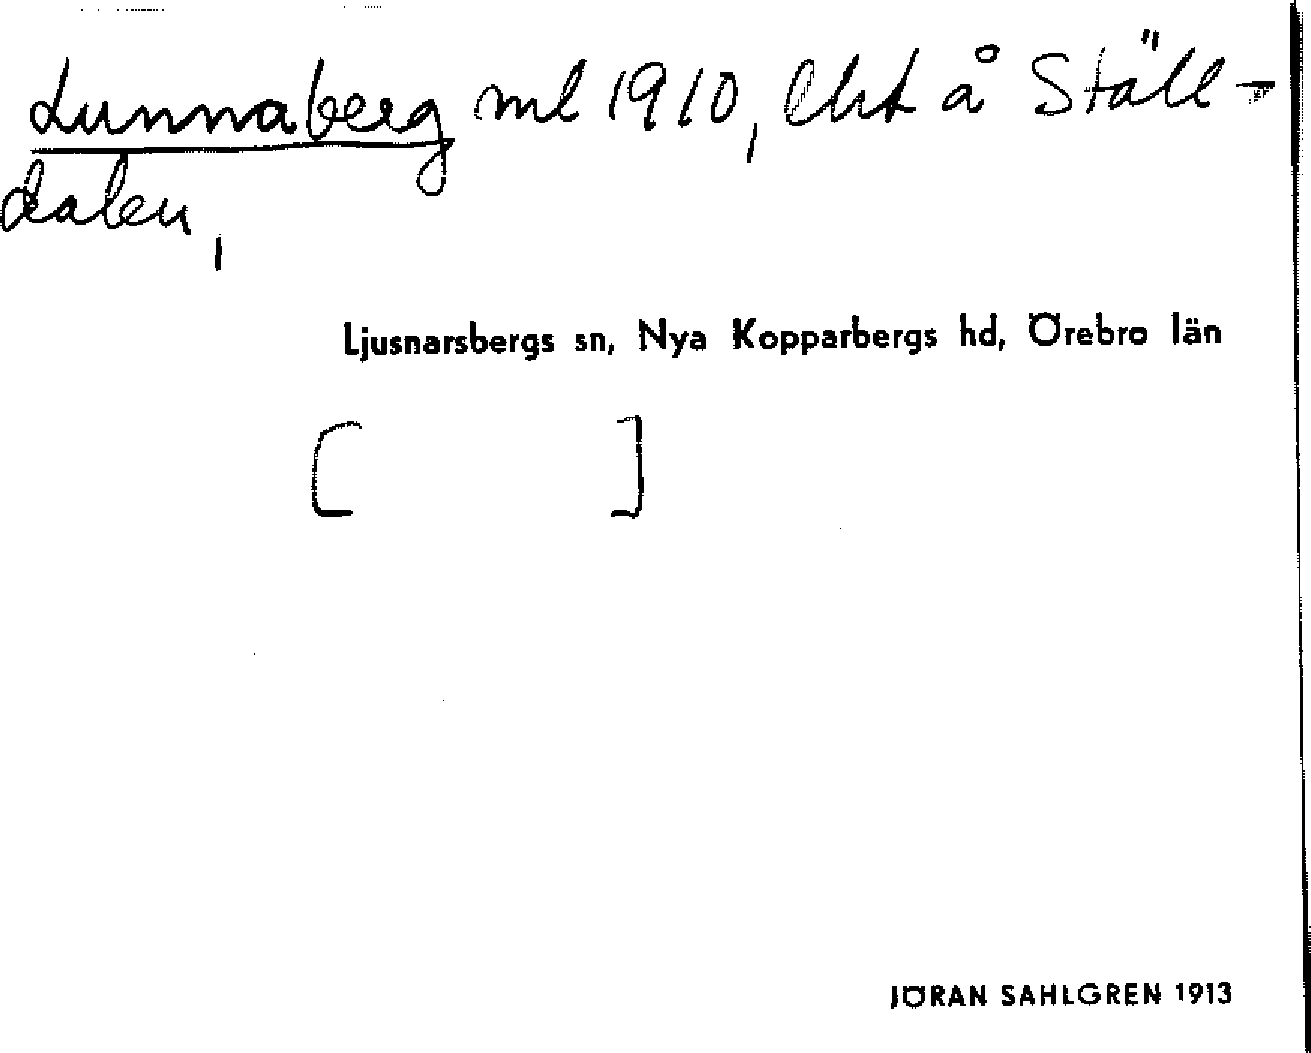 Lunnaberg ml 1910, Cht å Ställ-
dalen,
Ljusnarsbergs sn, Nya Kopparbergs hd, Örebro län
[ ]
JÖRAN SAHLGREN 1913